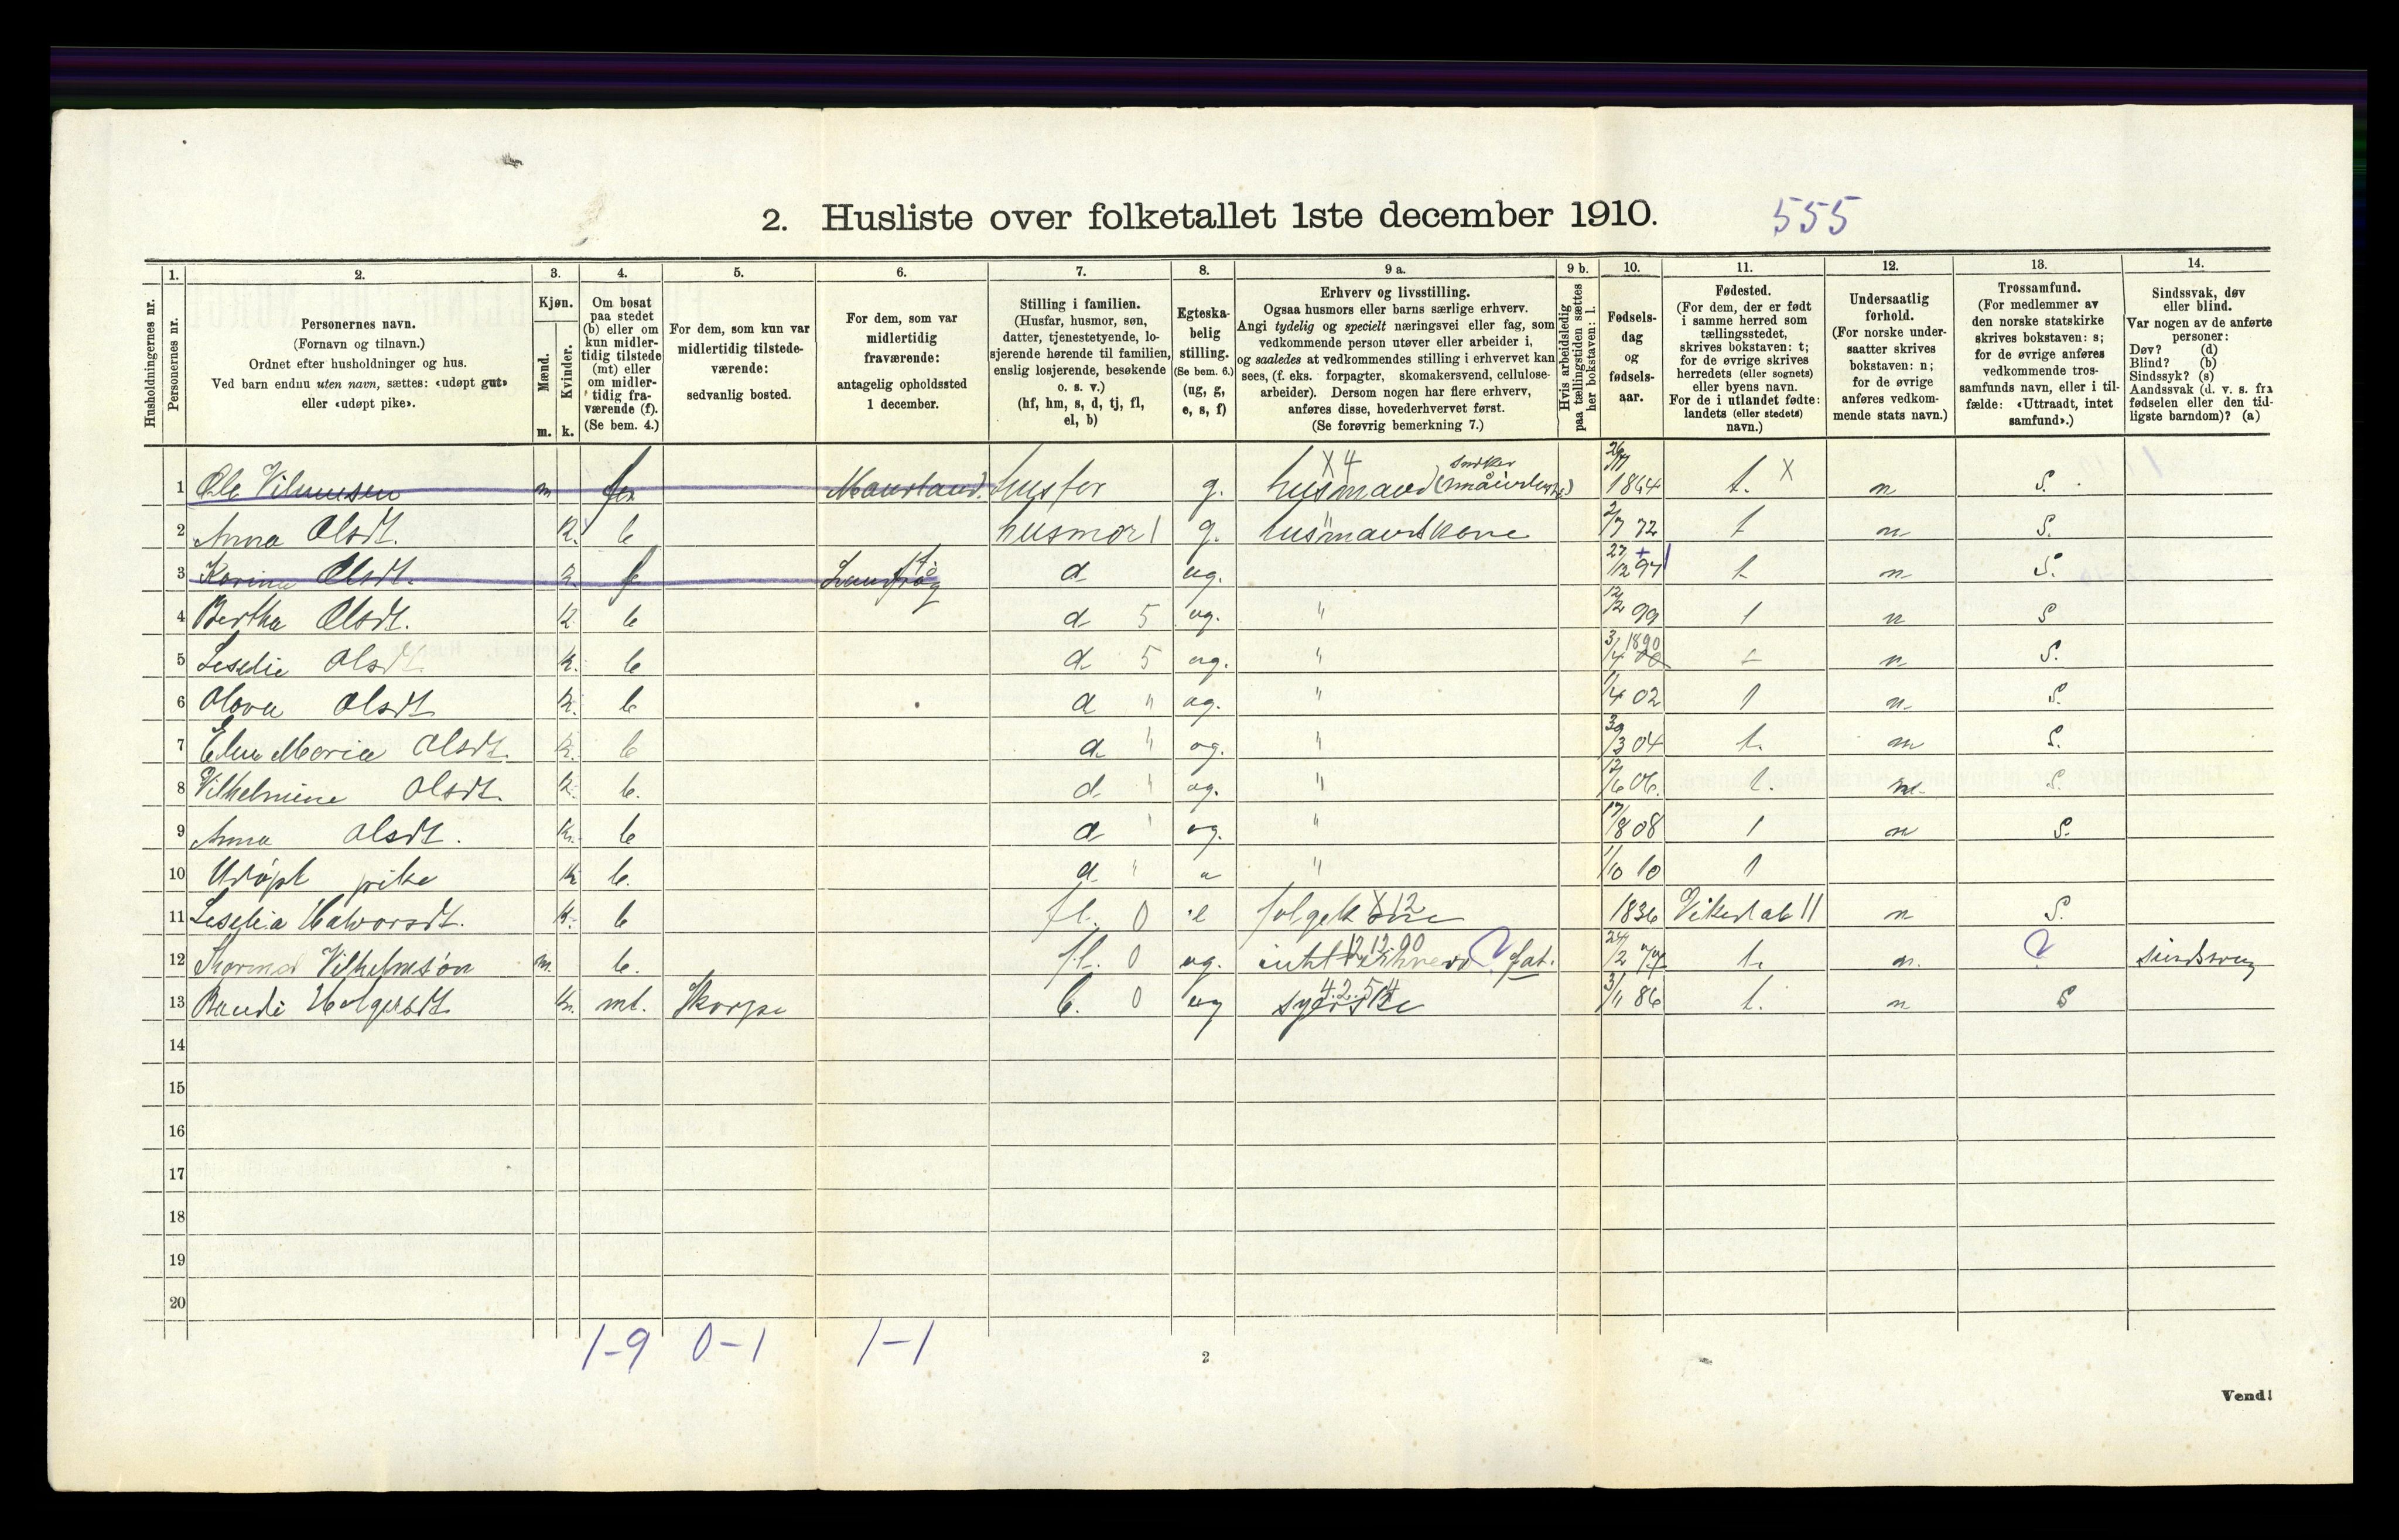 2. Husliste over folketallet 1ste december 1910. 555
1. 2. 3. 4. 5. 6. 7. 8. 9 a. 9 b. 10. 11. 12. 13. 14.
Husholdningernes nr.
Personernes nr.
Personernes navn.
(Fornavn og tilnavn.)
Ordnet efter husholdninger og hus.
Ved barn endnu uten navn, sættes: «udøpt gut»
eller «udøpt pike».
Kjøn.
Mænd.
Kvinder.
m. k.
Om bosat
paa stedet
(b) eller om
kun midler-
tidig tilstede
(mt) eller
om midler-
tidig fra-
værende (f).
(Se bem. 4.)
For dem, som kun var
midlertidig tilstede-
værende:
sedvanlig bosted.
For dem, som var
midlertidig
fraværende:
antagelig opholdssted
1 december.
Stilling i familien.
(Husfar, husmor, søn,
datter, tjenestetyende, lo-
sjerende hørende til familien,
enslig losjerende, besøkende
o. s. v.)
(hf, hm, s, d, tj, fl,
el, b)
Egteska-
belig
stilling.
(Se bem. 6.)
(ug, g,
e, s, f)
Erhverv og livsstilling.
Ogsaa husmors eller barns særlige erhverv.
Angi tydelig og specielt næringsvei eller fag, som
vedkommende person utøver eller arbeider i,
og saaledes at vedkommendes stilling i erhvervet kan
sees, (f. eks. forpagter, skomakersvend, cellulose-
arbeider). Dersom nogen har flere erhverv,
anføres disse, hovederhvervet først.
(Se forøvrig bemerkning 7.)
Hvis arbeidsledig
paa tællingstiden sættes
her bokstaven: l.
Fødsels-
dag
og
fødsels-
aar.
Fødested.
(For dem, der er født
i samme herred som
tællingsstedet,
skrives bokstaven: t;
for de øvrige skrives
herredets (eller sognets)
eller byens navn.
For de i utlandet fødte:
landets (eller stedets)
navn.)
Undersaatlig
forhold.
(For norske under-
saatter skrives
bokstaven: n;
for de øvrige
anføres vedkom-
mende stats navn.)
Trossamfund.
(For medlemmer av
den norske statskirke
skrives bokstaven: s;
for de øvrige anføres
vedkommende tros-
samfunds navn, eller i til-
fælde: «Uttraadt, intet
samfund».)
Sindssvak, døv
eller blind.
Var nogen av de anførte
personer:
Døv? (d)
Blind? (b)
Sindssyk? (s)
Aandssvak (d. v. s. fra
fødselen eller den tid-
ligste barndom)? (a)
1 Ole m husfar g. X 4 husmand snikker 1864 t. X n S.
2 Anna Olsdt. k. b husmor g. husmandskone 2/7 72 t n S.
3 Karina Olsdt. k. f d ug. 27/12 97 t n S.
4 Bertha Olsdt. k b d 5 ug. " 12/2 99 t n S
5 Olsdt k. b d 5 ug. " 3/4 1890 t n S.
6 Olava Olsdt k. b d " ug. " 1/4 02 t n. S.
7 Maria Olsdt. k. b d " ug. " 30/3 04 t. n S.
8 Vilhelmine Olsdt. k. b. d " ug. " 12/6 06. t. n. S.
9 Anna Olsdt. k. b d " ug. " 17/8 08 t n S.
10 Udøpt pike k b. d " " " 1/10 10 t
11 Halvorsdt. k. b fl. 0 e X 12 1836 n S.
12 Vilhelmsøn m. b. fl. 0 ug. 12.12.00 ? fat. 24/2 77 t. n. ?
13 Holgersdt. k. mt. Skorpe b. 0 ug 4.2.5 syerske 3/11 86 t. n S
14
15
16
17
18
19
20
1-9 0-1 1-1
2
Vend!